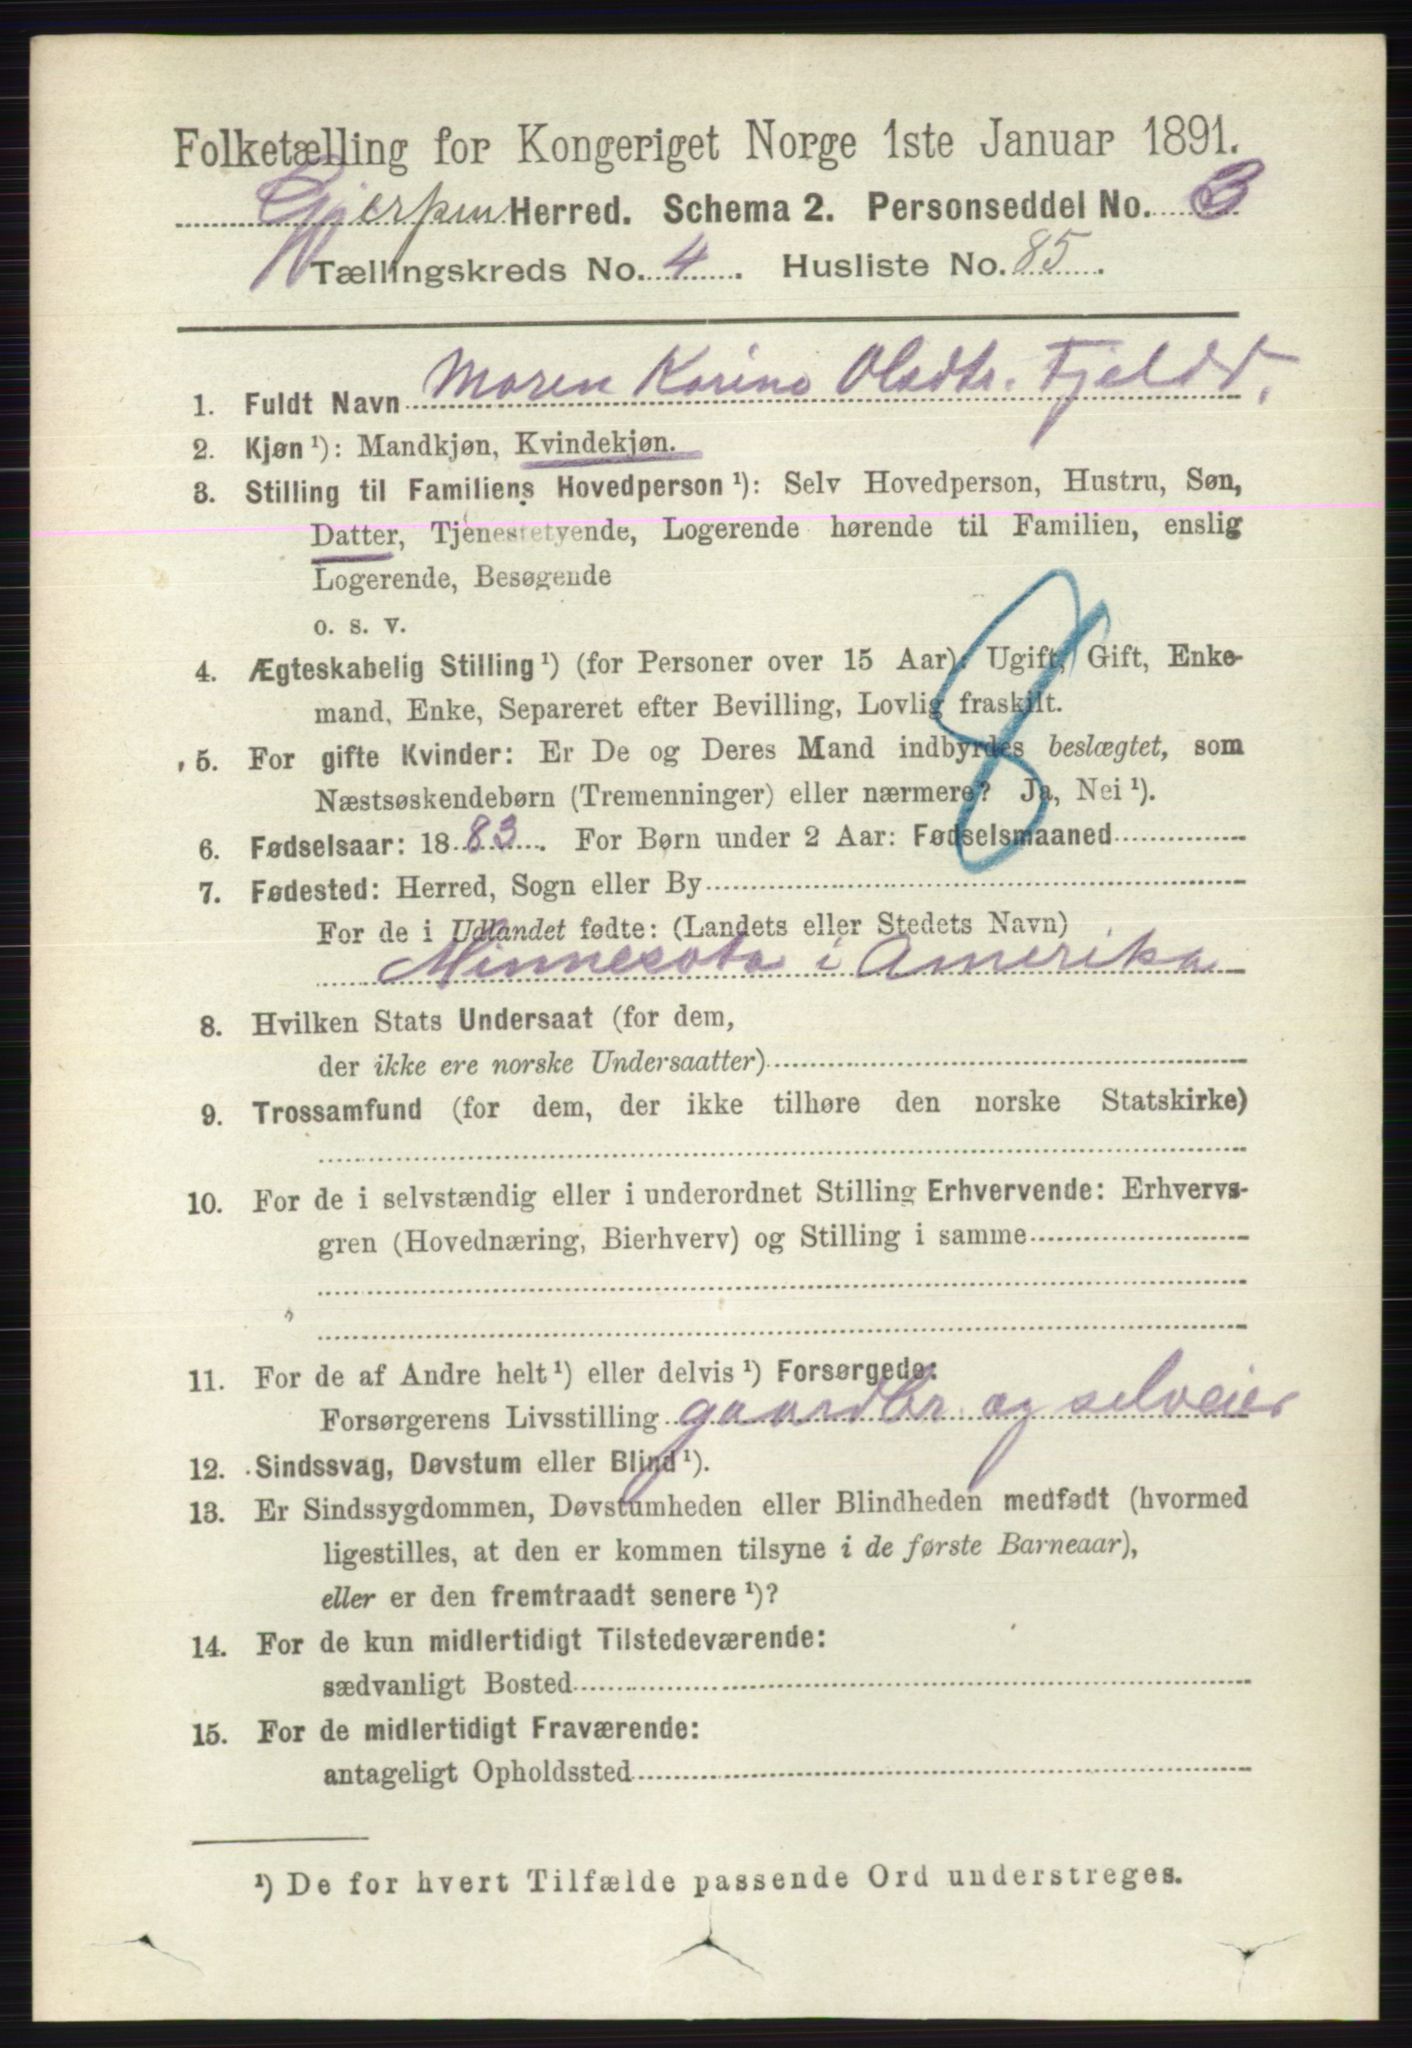 Folketælling for Kongeriget Norge 1ste Januar 1891.
Gjerpen Herred. Schema 2. Personseddel No. 3
Tællingskreds No. 4. Husliste No. 85.
1. Fuldt Navn Maren Karine Olsdtr. Fjeld
2. Kjøn ¹): Mandkjøn, Kvindekjøn.
3. Stilling til Familiens Hovedperson ¹): Selv Hovedperson, Hustru, Søn,
Datter, Tjenestetyende, Logerende hørende til Familien, enslig
Logerende, Besøgende
o. s. v.
4. Ægteskabelig Stilling ¹) (for Personer over 15 Aar): Ugift, Gift, Enke-
mand, Enke, Separeret efter Bevilling, Lovlig fraskilt.
5. For gifte Kvinder: Er De og Deres Mand indbyrdes beslægtet, som
Næstsøskendebørn (Tremenninger) eller nærmere? Ja, Nei ¹).
8
6. Fødselsaar: 1883. For Børn under 2 Aar: Fødselsmaaned
7. Fødested: Herred, Sogn eller By
For de i Udlandet fødte: (Landets eller Stedets Navn)
Minnesota i Amerika
8. Hvilken Stats Undersaat (for dem,
der ikke ere norske Undersaatter)
9. Trossamfund (for dem, der ikke tilhøre den norske Statskirke)
10. For de i selvstændig eller i underordnet Stilling Erhvervende: Erhvervs-
gren (Hovednæring, Bierhverv) og Stilling i samme
11. For de af Andre helt ¹) eller delvis ¹) Forsørgede:
Forsørgerens Livsstilling gaardbr. og selveier
12. Sindssvag, Døvstum eller Blind ¹).
13. Er Sindssygdommen, Døvstumheden eller Blindheden medfødt (hvormed
ligestilles, at den er kommen tilsyne i de første Barneaar),
eller er den fremtraadt senere ¹)?
14. For de kun midlertidigt Tilstedeværende:
sædvanligt Bosted
15. For de midlertidigt Fraværende:
antageligt Opholdssted
¹) De for hvert Tilfælde passende Ord understreges.